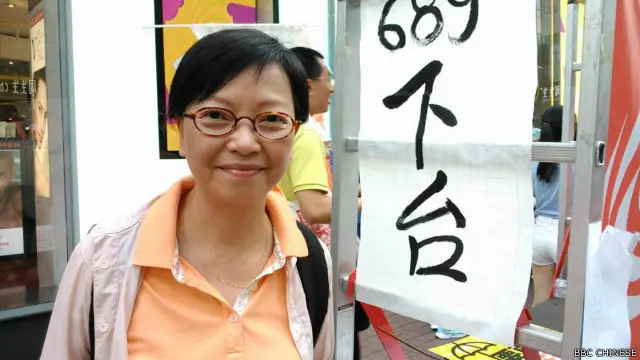 689
下
台
BBC CHINESE